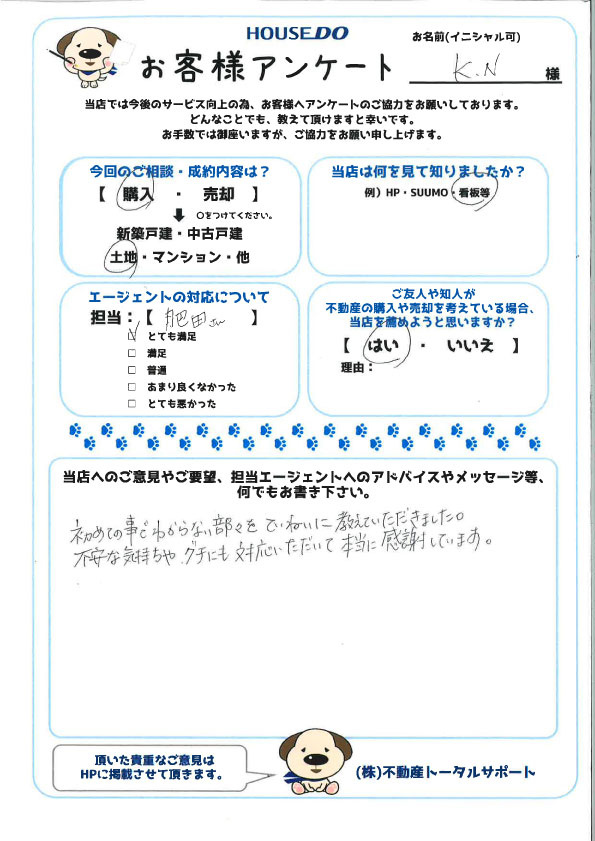 HOUSEDO
お客様アンケート
お名前(イニシャル可)
K.N 様
当店では今後のサービス向上の為、お客様へアンケートのご協力をお願いしております。
どんなことでも、教えて頂けますと幸いです。
お手数では御座いますが、ご協力をお願い申し上げます。
今回のご相談・成約内容は？
【 購入 ・ 売却 】
〇をつけてください。
新築戸建・中古戸建
土地・マンション・他
当店は何を見て知りましたか？
例）HP・SUUMO・看板等
エージェントの対応について
担当：【 肥田さん 】
□ とても満足
□ 満足
□ 普通
□ あまり良くなかった
□ とても悪かった
ご友人や知人が
不動産の購入や売却を考えている場合、
当店を薦めようと思いますか？
【 はい ・ いいえ 】
理由：
当店へのご意見やご要望、担当エージェントへのアドバイスやメッセージ等、
何でもお書き下さい。
初めての事でわからない部々をていねいに教えていただきました。
不安な気持ちや、グチにも対応いただいて本当に感謝しています。
頂いた貴重なご意見は
HPに掲載させて頂きます。
(株)不動産トータルサポート